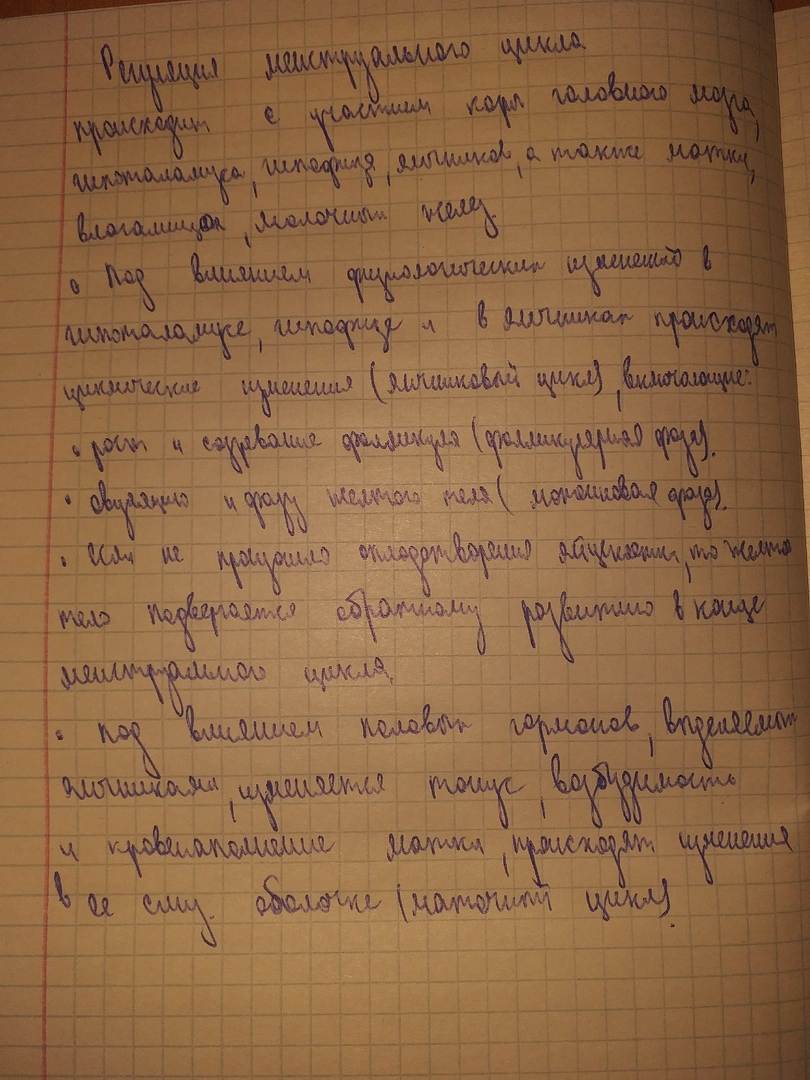 Регуляция менструального цикла
происходит с участием коры головного мозга,
гипоталамуса, гипофиза, яичников, а также матки,
влагалища, молочных желез.
• Под влиянием физиологических изменений в
гипоталамусе, гипофизе и в яичниках происходят
циклические изменения (яичниковый цикл), включающие:
• рост и созревание фолликула (фолликулярная фаза).
• овуляцию и фазу желтого тела (лютеиновая фаза).
• Если не произошло оплодотворения яйцеклетки, то желто
тело подвергается обратному развитию в конце
менструального цикла.
• под влиянием половых гормонов, выделяемых
яичниками, изменяется тонус, возбудимость
и кровенаполнение матки, происходят изменения
в ее слиз. оболочке (маточный цикл).